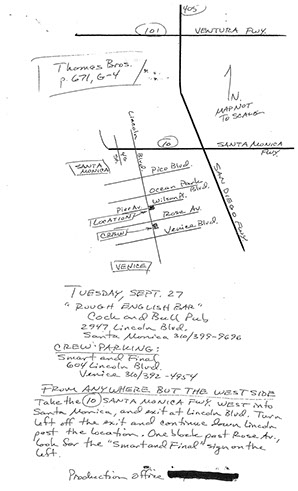 405
101
VENTURA FWY.
Thomas Bros.
p. 671, G-4
N
MAP NOT
TO SCALE
Lincoln
Blvd.
10
SANTA MONICA
FWY.
SANTA
MONICA
Pico Blvd.
SAN DIEGO FWY
Ocean Park
Blvd.
Wilson Pl.
Pier Av.
LOCATION
Rose Av.
CREW
Venice Blvd.
VENICE
TUESDAY, SEPT. 27
"ROUGH ENGLISH BAR"
Cock and Bull Pub
2947 Lincoln Blvd.
Santa Monica 310/399-9696
CREW PARKING:
Smart and Final
604 Lincoln Blvd.
Venice 310/392-4954
FROM ANYWHERE BUT THE WEST SIDE
Take the 10 SANTA MONICA FWY. WEST into
Santa Monica, and exit at Lincoln Blvd. Turn
left off the exit and continue down Lincoln
past the location. One block past Rose Av.,
look for the "Smart and Final" sign on the
left.
Production Office